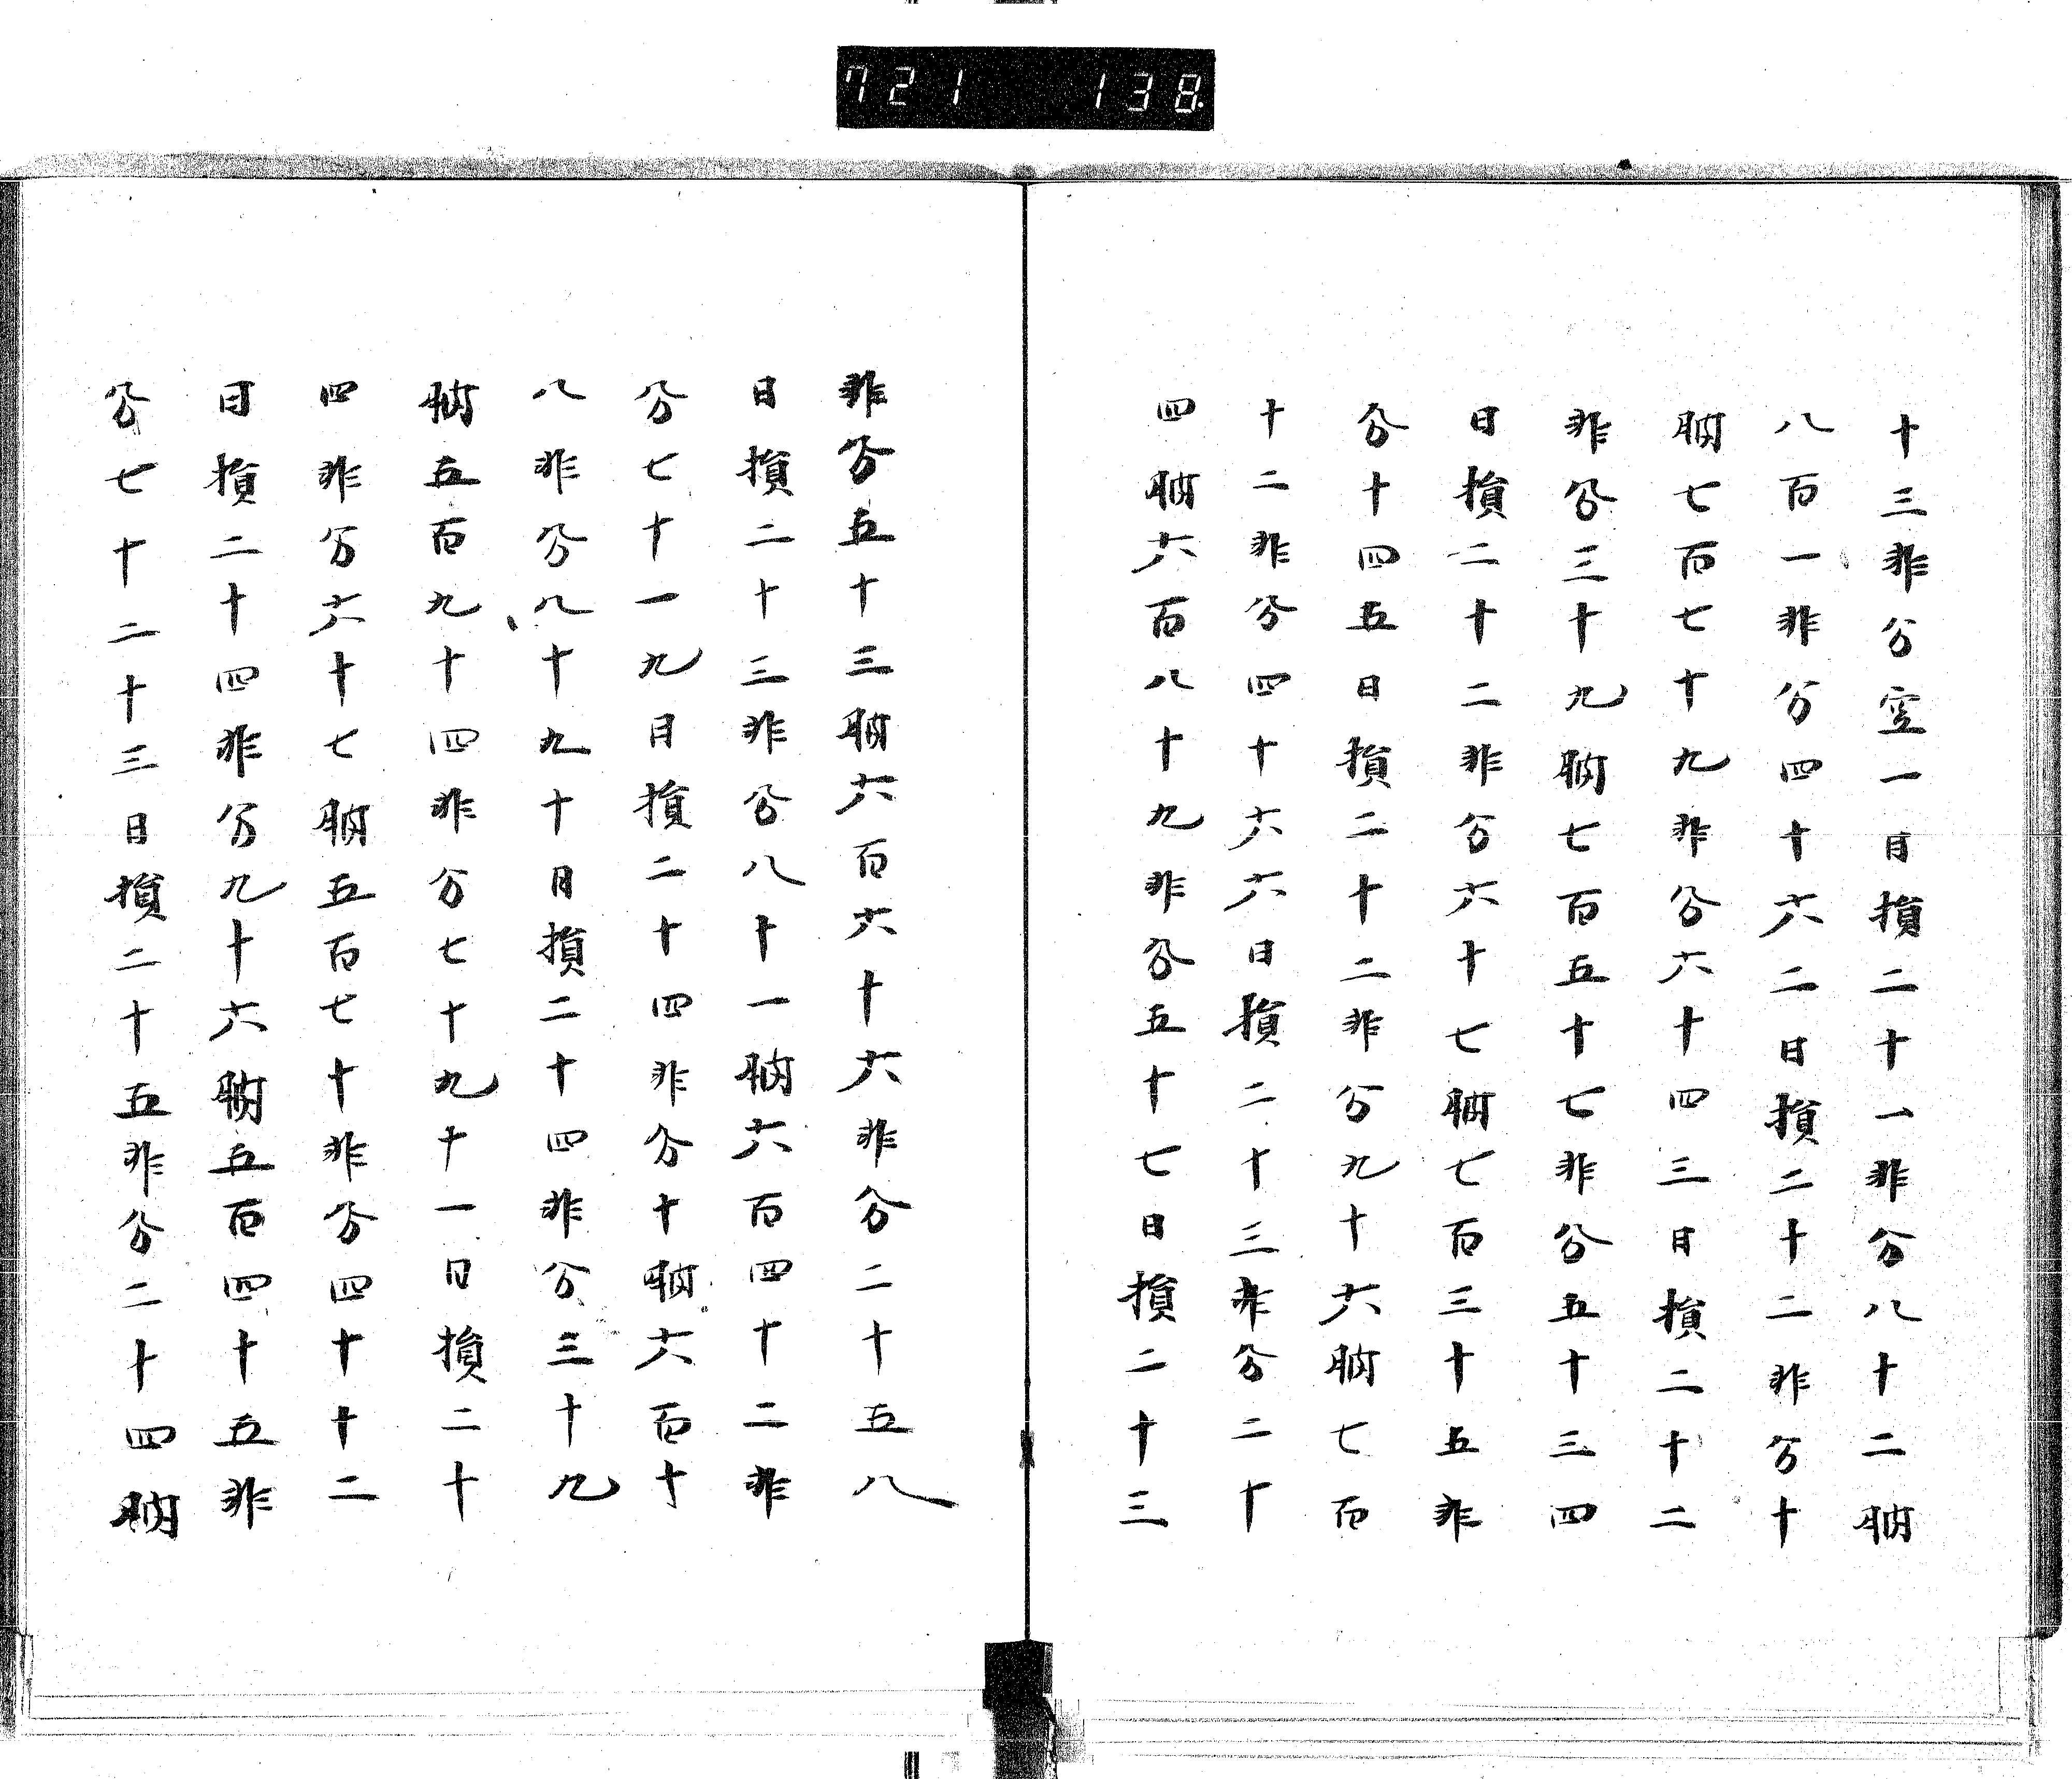 721 138
十三非分空一日損二十一非分八十二朒
八百一非分四十六二日損二十二非分十
朒七百七十九非分六十四三日損二十二
非分三十九朒七百五十七非分五十三四
日損二十二非分六十七朒七百三十五非
分十四五日損二十二非分九十六朒七百
十二非分四十六六日損二十三非分二十
四朒六百八十九非分五十七日損二十三
非分五十三朒六百六十六非分二十五八
日損二十三非分八十一朒六百四十二非
分七十一九日損二十四非分十朒六百十
八非分八十九十日損二十四非分三十九
朒五百九十四非分七十九十一日損二十
四非分六十七朒五百七十非分四十十二
日損二十四非分九十六朒五百四十五非
分七十二十三日損二十五非分二十四朒